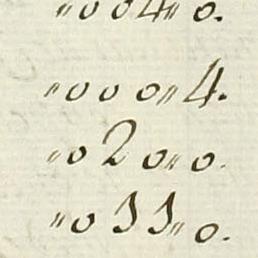 „004„0.
„000„4.
„020„0.
„033„0.